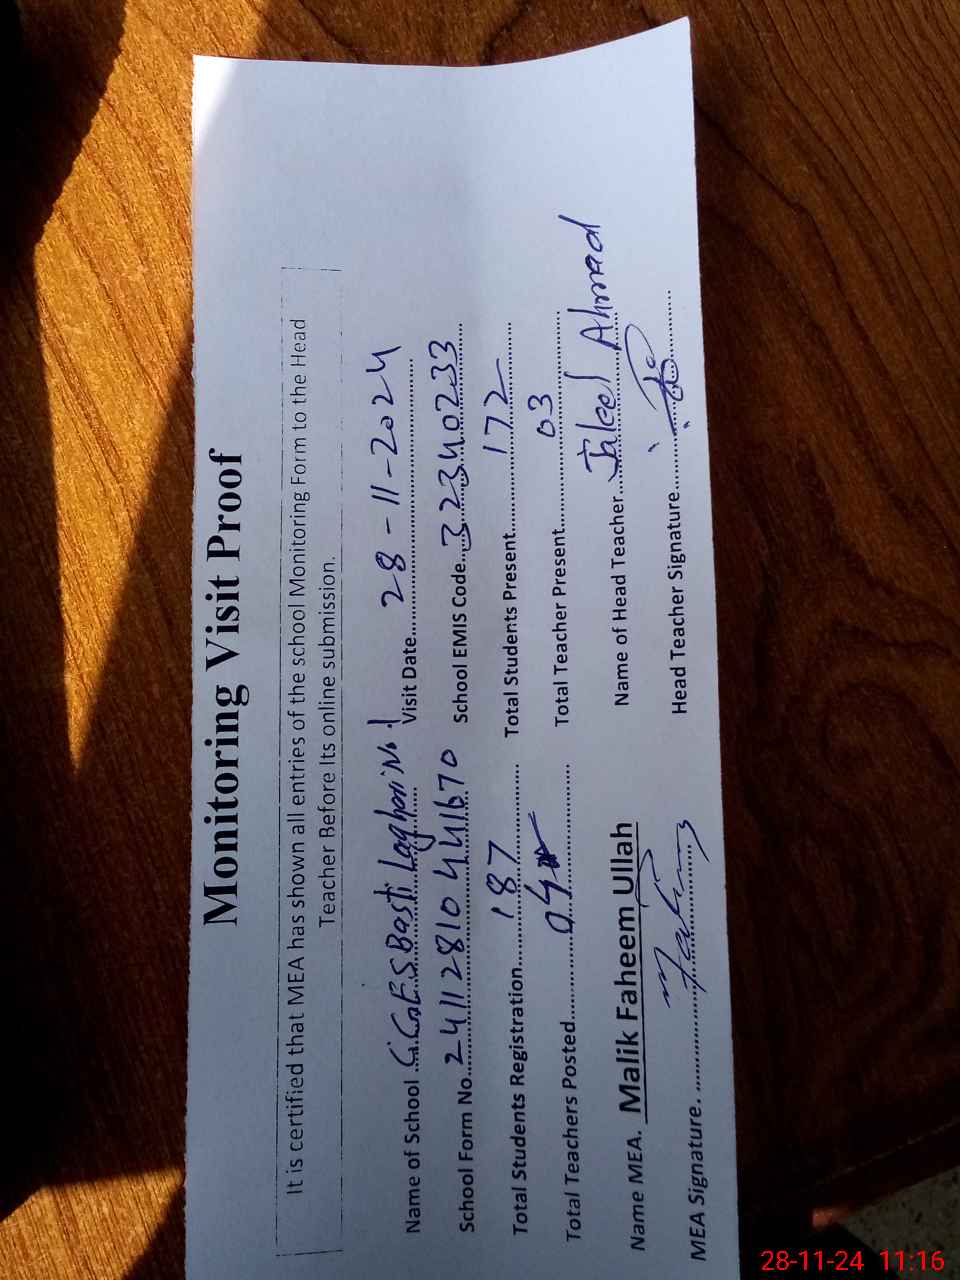 Monitoring Visit Proof
It is certified that MEA has shown all entries of the school Monitoring Form to the Head
Teacher Before Its online submission.
Name of School G.G.E.S Basti Laghari No 1 Visit Date 28-11-2024
School Form No. 24112810441670 School EMIS Code 32340233
Total Students Registration 187 Total Students Present 172
Total Teachers Posted 04 Total Teacher Present 03
Name MEA. Malik Faheem Ullah Name of Head Teacher Jaleel Ahmad
MEA Signature. Head Teacher Signature
28-11-24 11:16